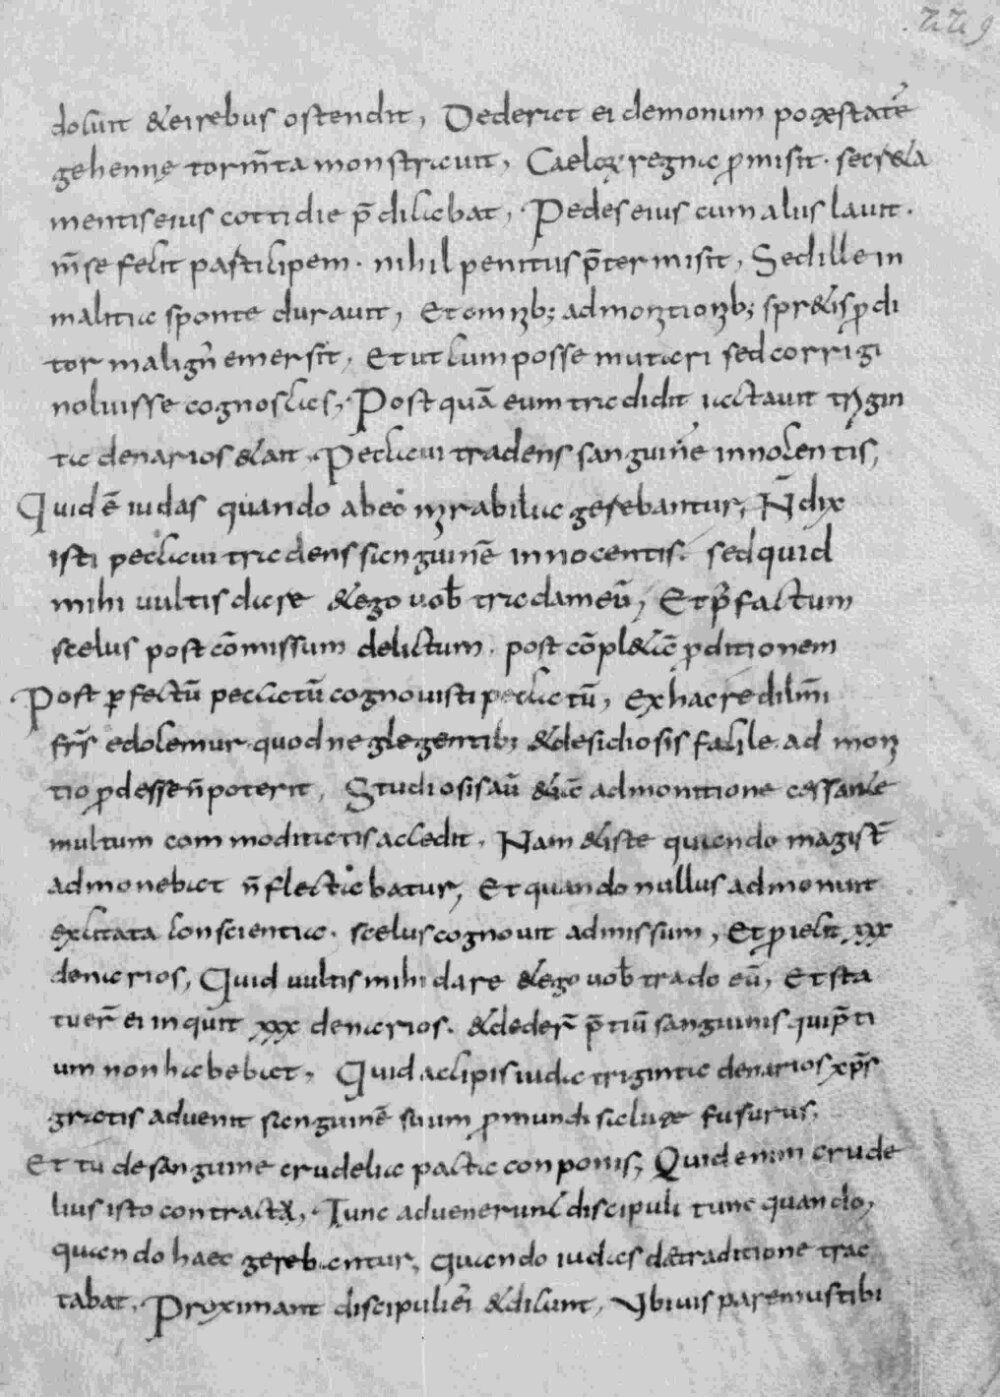 docuit & ei rebus ostendit, Dederat ei demonum potestatē
gehennę torm̄ta monstrauit, Caeloꝝ regna ꝓmisit. secreta
mentis eius cottidie p̄dicabat, Pedes eius cum aliis lauit.
m̄se fecit participem. nihil penitus p̄termisit, Sed ille in
malitia sponte durauit, Et omnib; admonitionib; spretis ꝓdi
tor malign̄ emersit, Et ut cum posse mutari sed corrigi
noluisse cognoscas, Post quā eum tradidit iactauit trigin
ta denarios & ait, Peccaui tradens sanguinē innocentis,
Quid ē iudas quando ab eo mirabilia gerebantur, N̄ dix
isti peccaui tradens sanguinē innocentis. sed quid
mihi uultis dare & ego uob̄ tradam eū, Et p̄ factum
scelus post cōmissum delictum. post cōpl&ā ꝓditionem
Post ꝑfectū peccatū cognouisti peccatū, ex hac re dilm̄i
frs̄ edocemur quod neglegentib; & desidiosis facile admoni
tio ꝓdesse n̄ poterit, Studiosis aū &iā admonitione cessante
multum commoditatis accedit. Nam & iste quando magist̄
admonebat n̄ flectebatur, Et quando nullus admonuit
excitata conscientia. scelus cognouit admissum, Et ꝓiecit xxx
denarios, Quid uultis mihi dare & ego uob̄ trado eū, Et sta
tuer̄ ei inquit xxx denarios. & deder̄ p̄tiū sanguinis qui p̄ti
um non habebat, Quid accipis iuda triginta denarios xp̄s
gratis aduenit sanguinē suum ꝓ mundi salute fusurus,
Et tu de sanguine crudelia pacta conponis, Quid enim crude
lius isto contractu, Tunc aduenerunt discipuli tunc quando,
quando haec gerebantur, quando iudas de traditione trac
tabat, Proximant discipuli ei & dicunt, Vbi uis paremus tibi